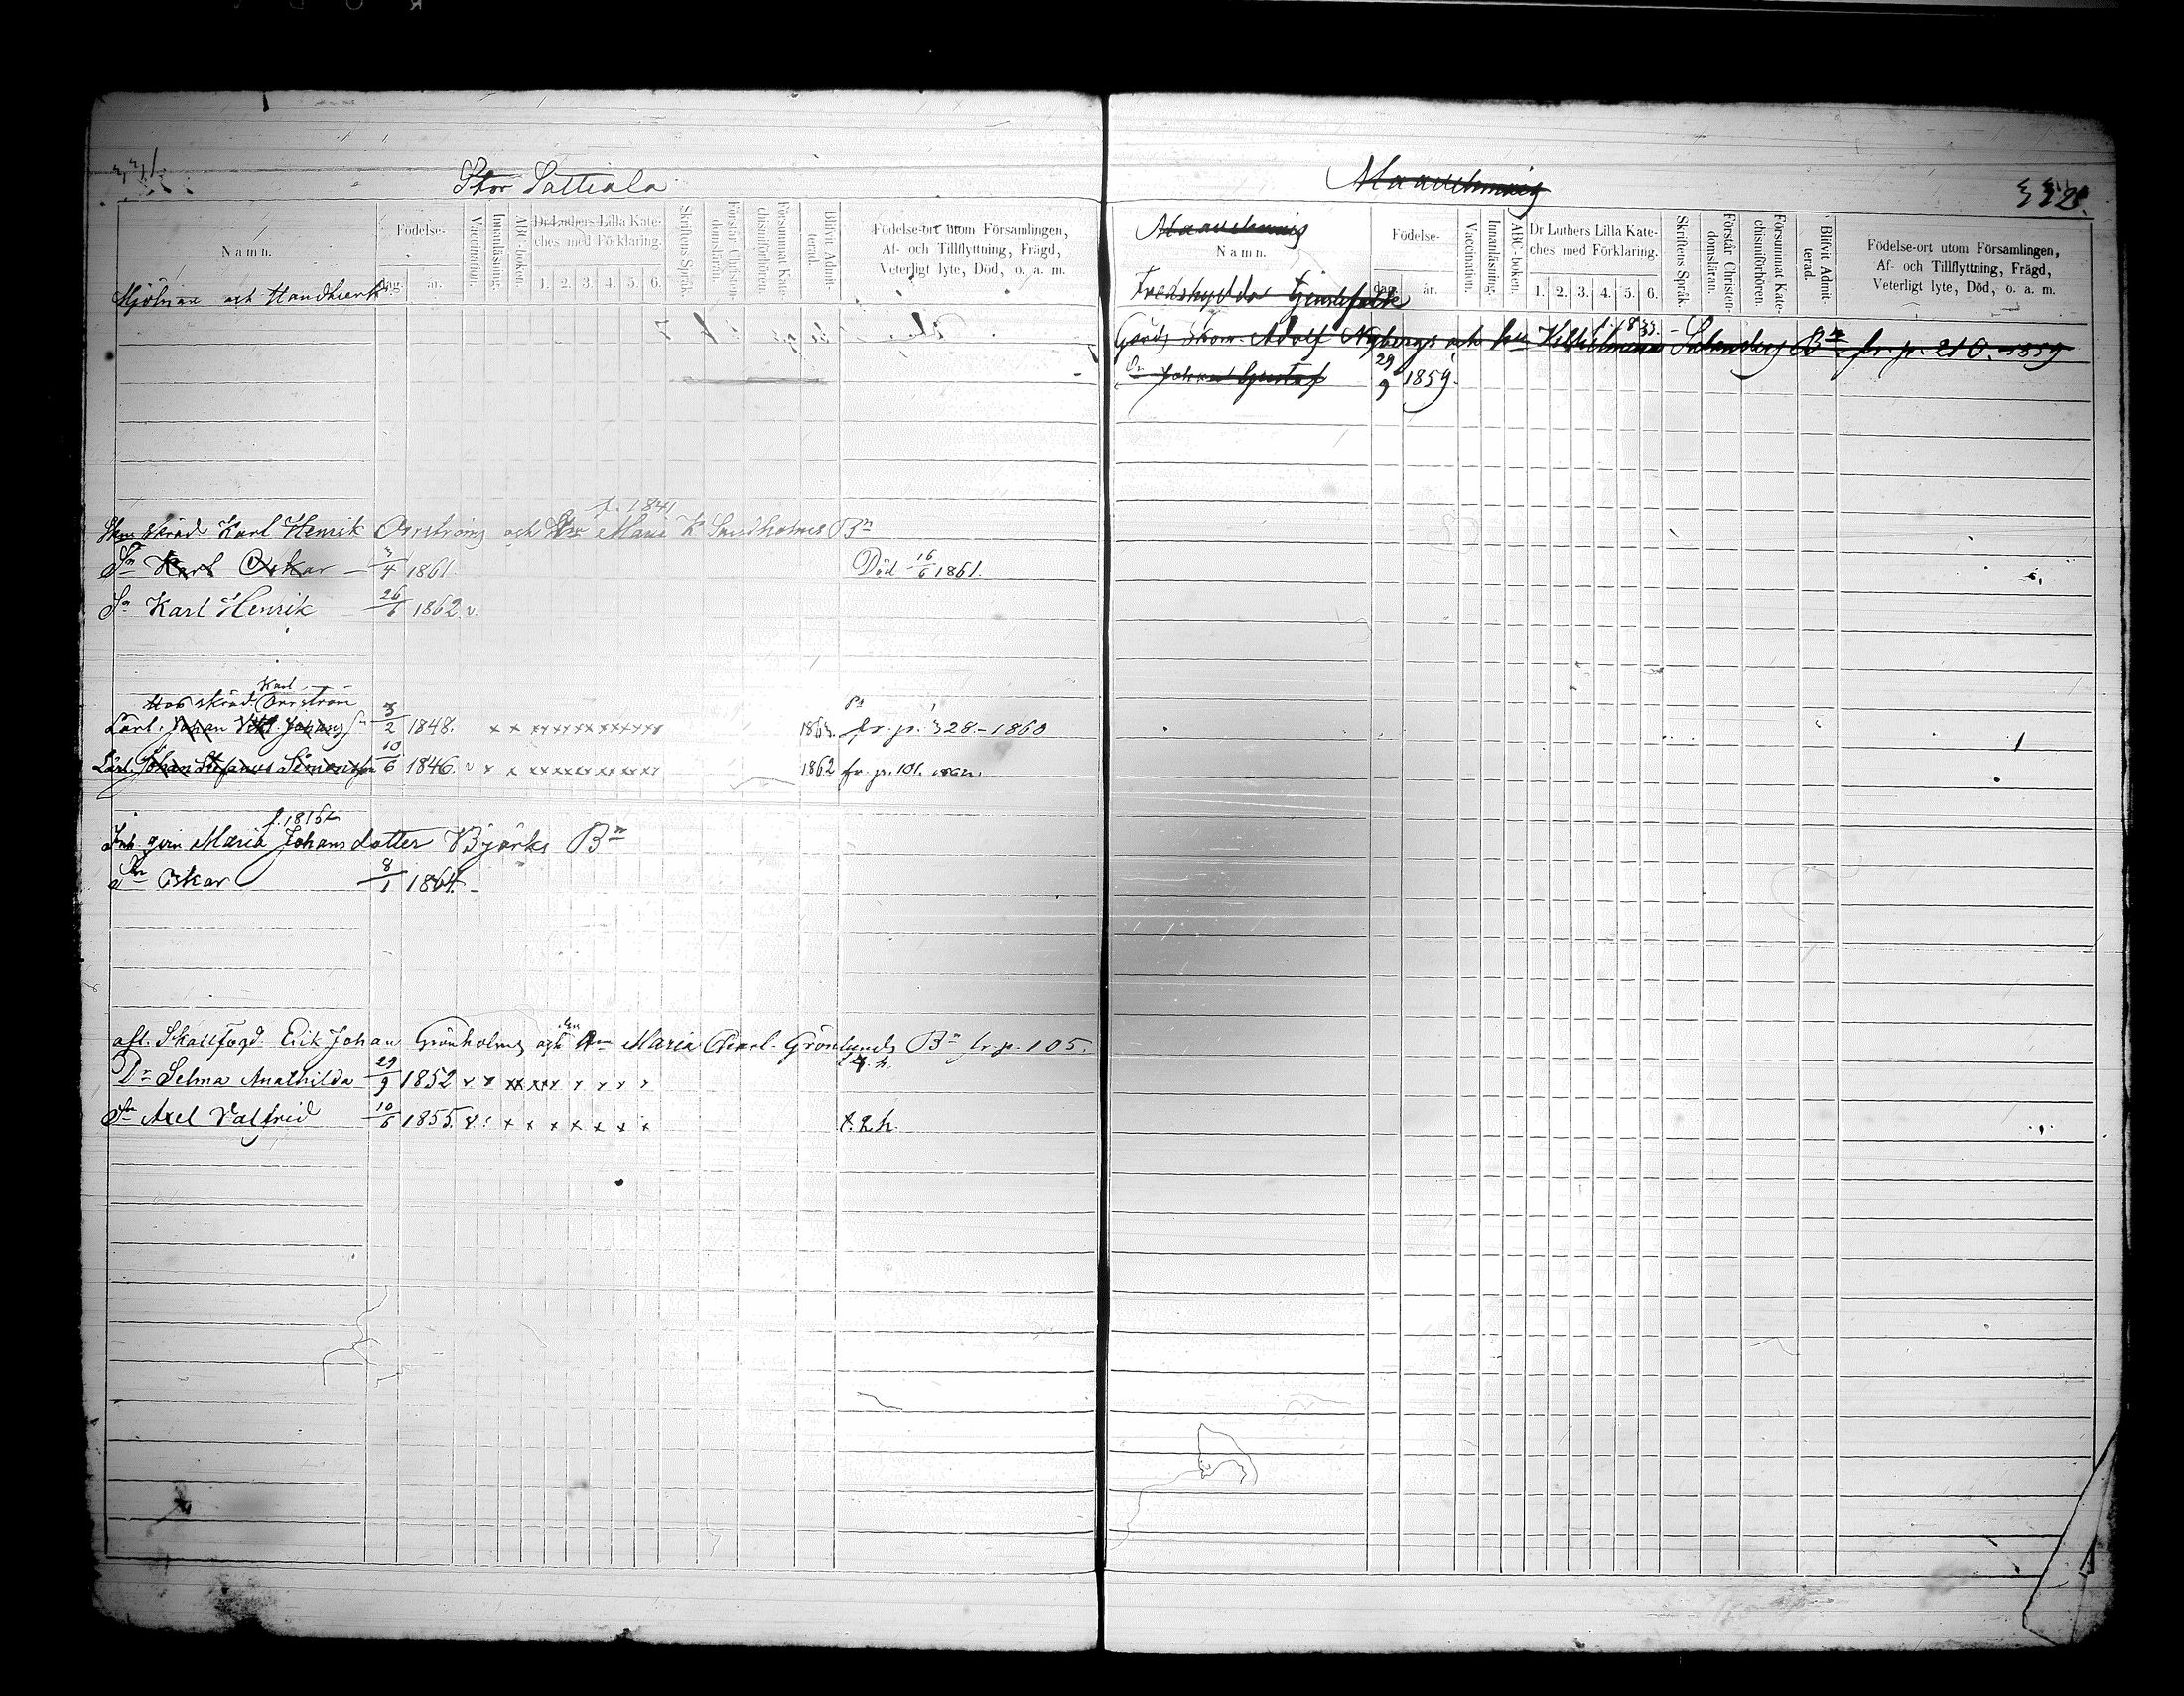 331.
Stor Sattiala
Namn.
Födelse-
dag.
år.
Vaccination.
Innanläsning.
ABC-boken.
Dr Luthers Lilla Kate-
ches med Förklaring.
1. 2. 3. 4. 5. 6.
Skriftens Språk.
Förstår Christen-
domsläran.
Försummat Kate-
chismiförhören.
Blifvit Admit-
terad.
Födelse-ort utom Församlingen,
Af- och Tillflyttning, Frägd,
Veterligt lyte, Död, o. a. m.
Mjölnare och Handtverk
f. 1841
Skräd Karl Henrik Orrströms och Maria K Sundholms Bn
Sn Karl Oskar 3/4 1861 Död 16/6 1861.
Sn Karl Henrik 26/6 1862 v.
Karl
Hos skräd. Orrström
Lärl. Johan Vilh. Johans Sn 3/2 1848. x x xx xx xx xx xx xx 1863. fr. p. 328.-1860
Lärl. Johan Stefanus Simonsson 10/6 1846. v x x xx xx xx xx xx xx 1862 fr. p. 101. 1862.
Inh. qvin Maria Johansdotter Björks Bn
Sn Oskar 8/1 1864.
afl. Skallfogd. Erik Johan Grönholms och Maria Grönlunds Bn fr. p. 105.
Dr Selma Mathilda 29/9 1852 x x xx xx x x x x x
Sn Axel Valfrid 10/6 1855. v x x x x x x x x. 2. h.
Maanthmig
332.
Namn.
Födelse-
dag.
år.
Vaccination.
Innanläsning.
ABC-boken.
Dr Luthers Lilla Kate-
ches med Förklaring.
1. 2. 3. 4. 5. 6.
Skriftens Språk.
Förstår Christen-
domsläran.
Försummat Kate-
chismiförhören.
Blifvit Admit-
terad.
Födelse-ort utom Församlingen,
Af- och Tillflyttning, Frägd,
Veterligt lyte, Död, o. a. m.
Fredskyllda Tjenstefolk
Gårds Skom. Adolf Nybergs och hu Vilhelmina Bn fr. p. 210. 1859
Sn Johan Gustaf 29/9 1859.